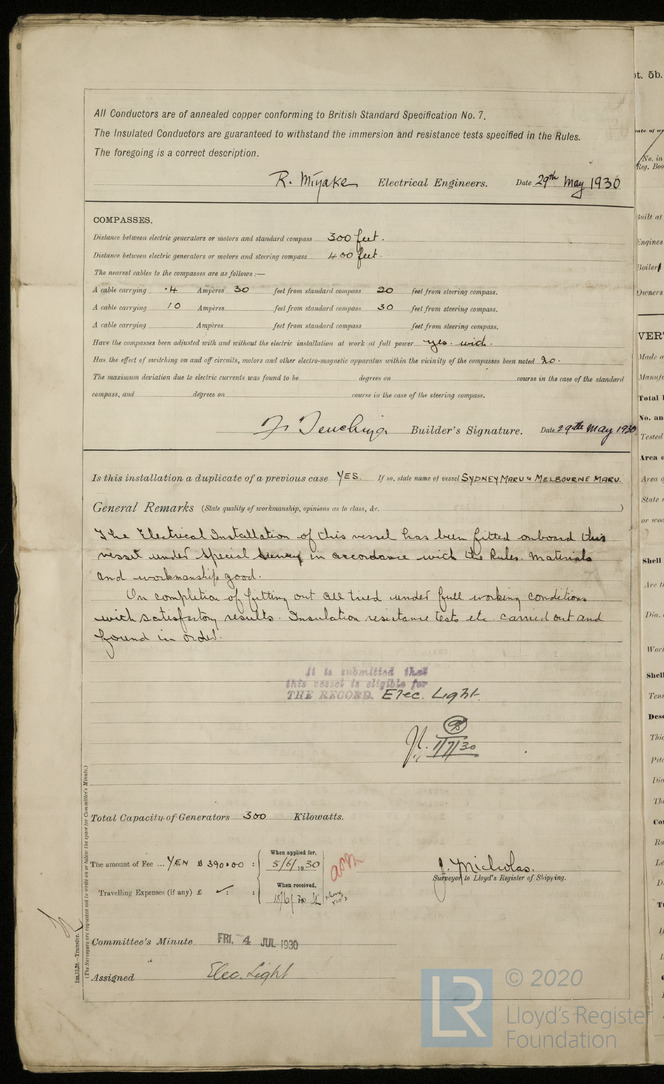 All Conductors are of annealed copper conforming to British Standard Specification No. 7.
The Insulated Conductors are guaranteed to withstand the immersion and resistance tests specified in the Rules.
The foregoing is a correct description.
R. Miyake Electrical Engineers. Date 29th May 1930
COMPASSES.
Distance between electric generators or motors and standard compass 300 feet.
Distance between electric generators or motors and steering compass 400 feet.
The nearest cables to the compasses are as follows:—
A cable carrying .4 Ampères 30 feet from standard compass 20 feet from steering compass.
A cable carrying 10 Ampères feet from standard compass 30 feet from steering compass.
A cable carrying Ampères feet from standard compass feet from steering compass.
Have the compasses been adjusted with and without the electric installation at work at full power yes.
Has the effect of switching on and off circuits, motors and other electro-magnetic apparatus within the vicinity of the compasses been noted
The maximum deviation due to electric currents was found to be degrees on course in the case of the standard
compass, and degrees on course in the case of the steering compass.
Builder's Signature. Date 29th May 1930
Is this installation a duplicate of a previous case YES. If so, state name of vessel SYDNEY MARU & MELBOURNE MARU.
General Remarks (State quality of workmanship, opinions as to class, &c. )
The Electrical Installation of this vessel has been fitted onboard this
vessel under Special Survey in accordance with the Rules. Materials
and workmanship good.
On completion of fitting out all tried under full working conditions
with satisfactory results. Insulation resistance tests etc carried out and
found in order.
It is submitted that
this vessel is eligible for
THE RECORD. Elec. Light.
1/7/30
Total Capacity of Generators 300 Kilowatts.
The amount of Fee ... YEN 390.00 :
When applied for,
5/6/1930
Travelling Expenses (if any) £ :
When received,
J. Nicholas.
Surveyor to Lloyd's Register of Shipping.
Committee's Minute FRI. 4 JUL 1930
Assigned Elec. Light
LR
© 2020
Lloyd's Register
Foundation